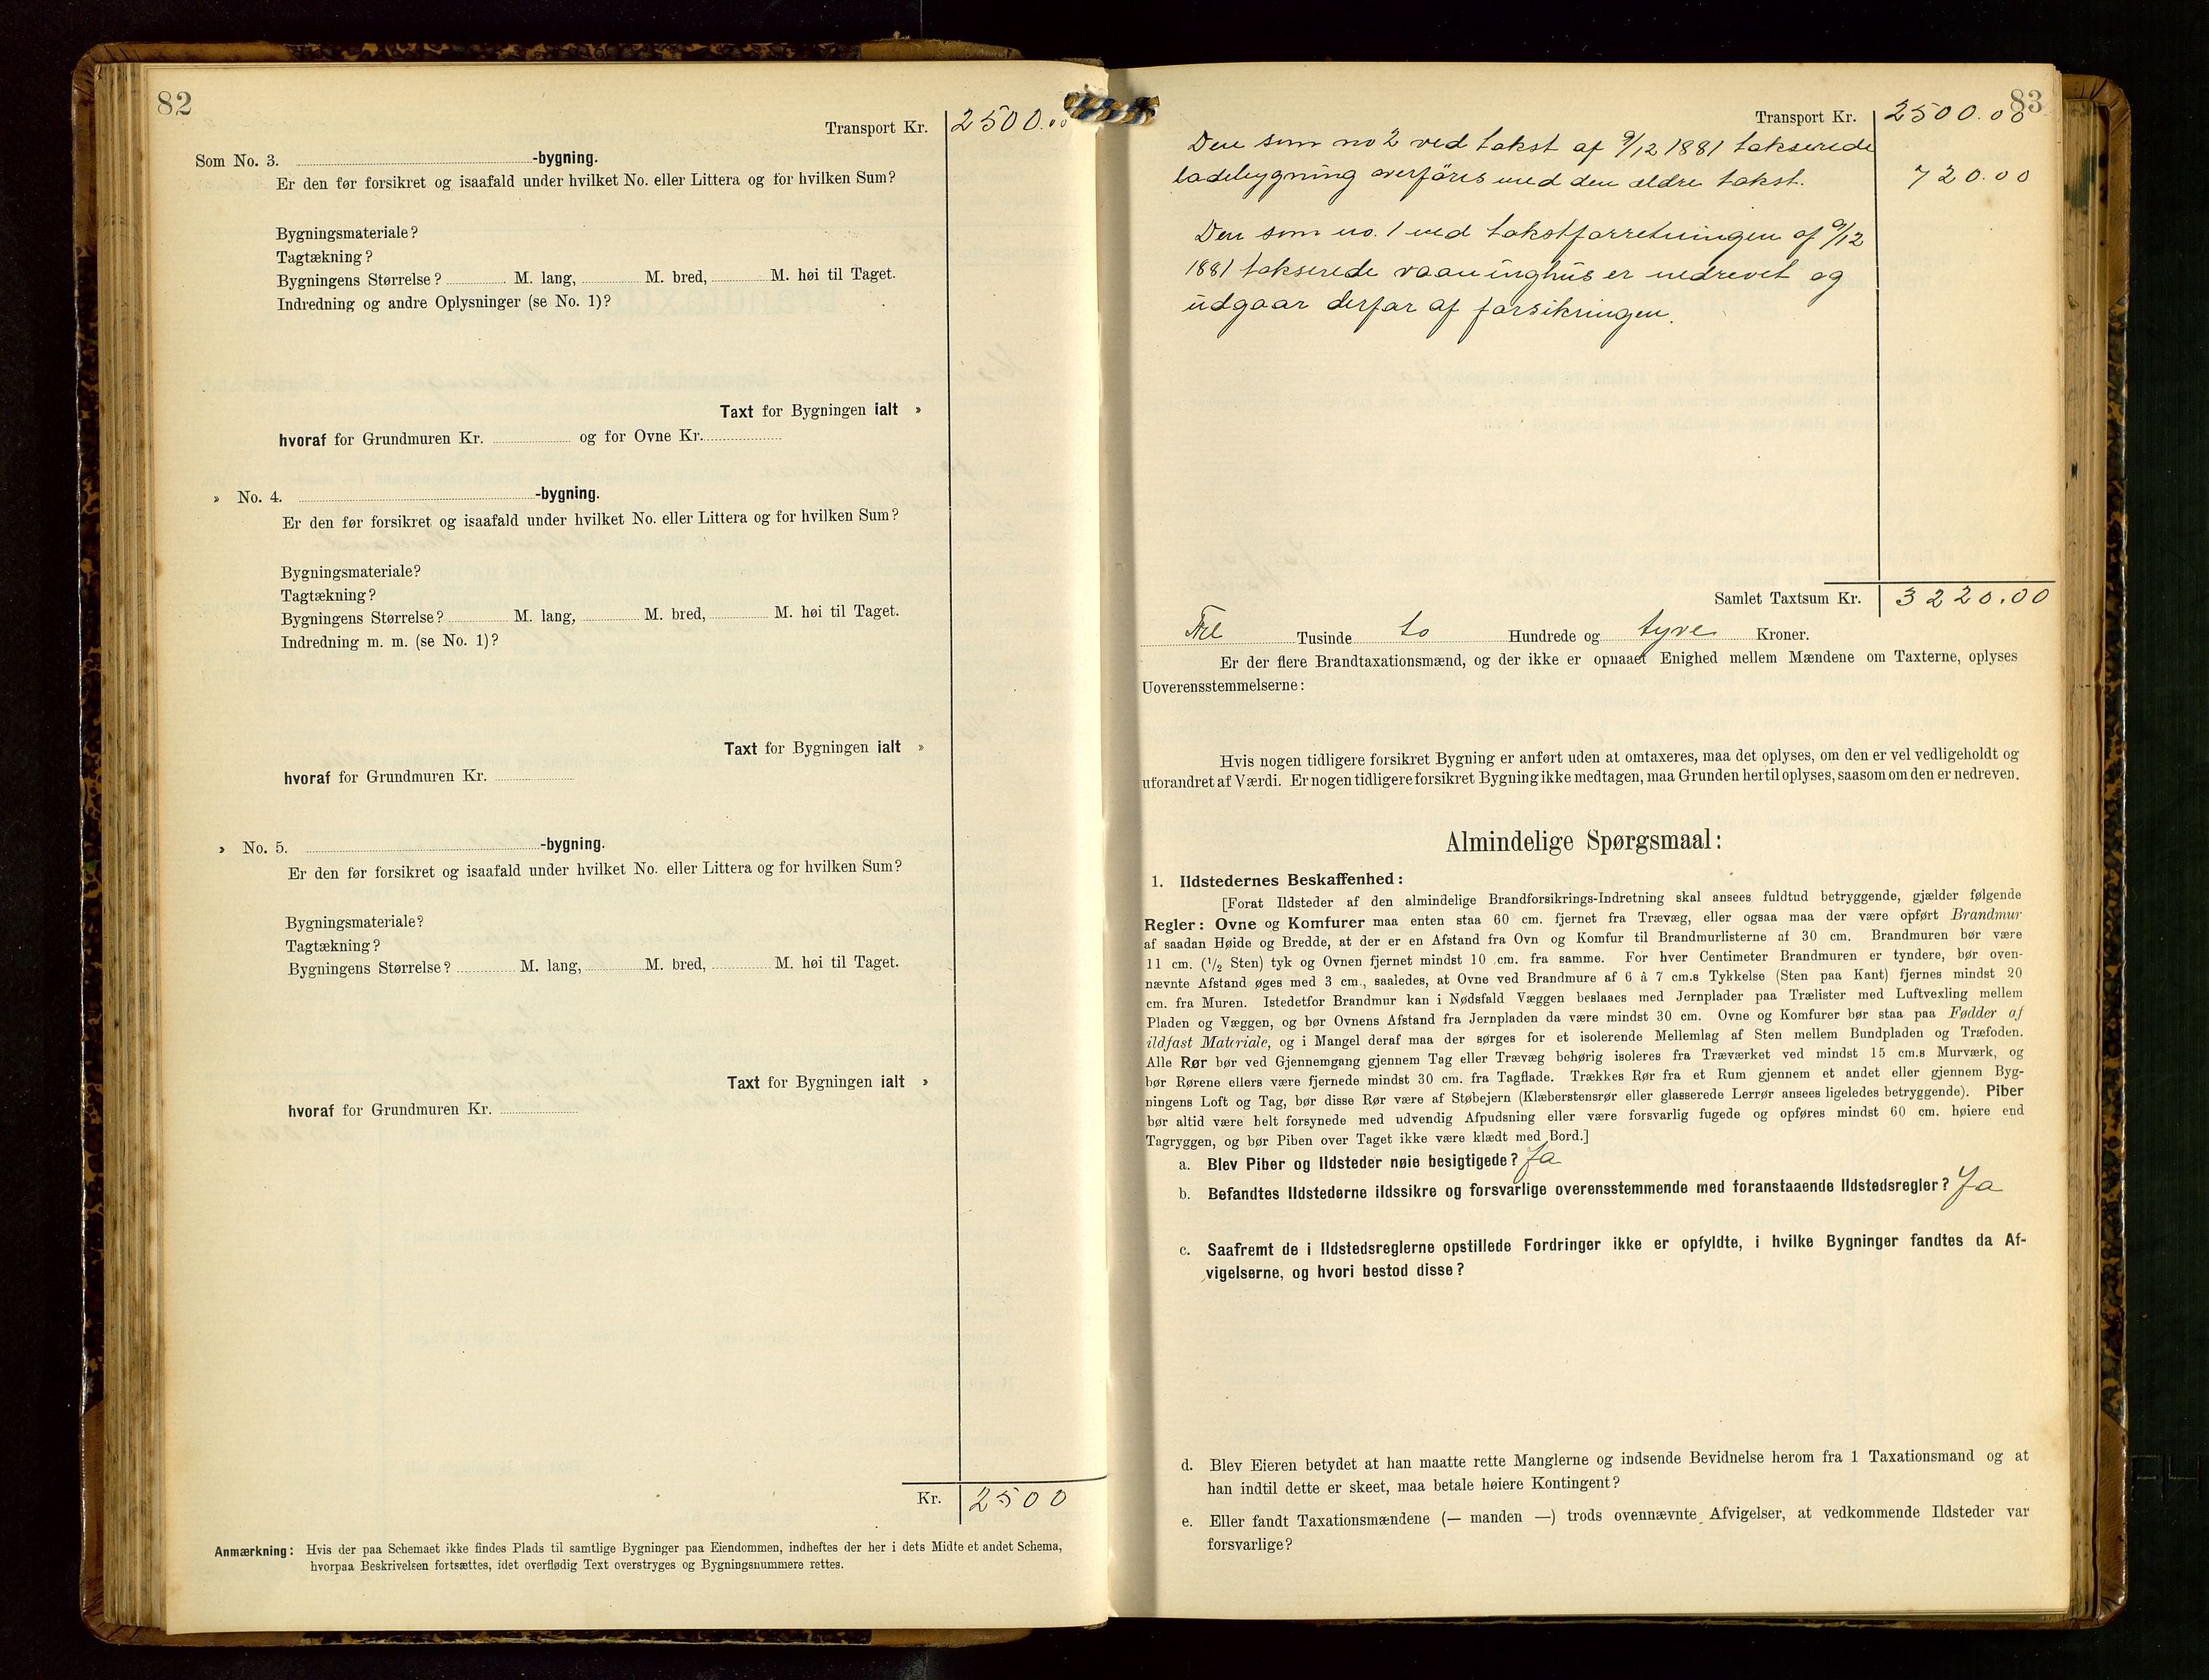 82
Transport Kr. 2500.00
Som No. 3. -bygning.
Er den før forsikret og isaafald under hvilket No. eller Littera og for hvilken Sum?
Bygningsmateriale?
Tagtækning?
Bygningens Størrelse? M. lang, M. bred, M. høi til Taget.
Indredning og andre Oplysninger (se No. 1)?
Taxt for Bygningen ialt »
hvoraf for Grundmuren Kr. og for Ovne Kr.
» No. 4. -bygning.
Er den før forsikret og isaafald under hvilket No. eller Littera og for hvilken Sum?
Bygningsmateriale?
Tagtækning?
Bygningens Størrelse? M. lang, M. bred, M. høi til Taget.
Indredning m. m. (se No. 1)?
Taxt for Bygningen ialt »
hvoraf for Grundmuren Kr.
» No. 5. -bygning.
Er den før forsikret og isaafald under hvilket No. eller Littera og for hvilken Sum?
Bygningsmateriale?
Tagtækning?
Bygningens Størrelse? M. lang, M. bred, M. høi til Taget.
Taxt for Bygningen ialt »
hvoraf for Grundmuren Kr.
Kr. 2500
Anmærkning: Hvis der paa Schemaet ikke findes Plads til samtlige Bygninger paa Eiendommen, indheftes der her i dets Midte et andet Schema,
hvorpaa Beskrivelsen fortsættes, idet overflødig Text overstryges og Bygningsnummere rettes.
83
Transport Kr. 2500.00
Den som no 2 ved takst af 9/12 1881 takserede
ladebygning overføres med den ældre takst. 720.00
Den som no. 1 ved takstforretningen af 9/12
1881 takserede vaaninghus er nedrevet og
udgaar derfor af forsikringen.
Samlet Taxtsum Kr. 3220.00
Tre Tusinde to Hundrede og tyve Kroner.
Er der flere Brandtaxationsmænd, og der ikke er opnaaet Enighed mellem Mændene om Taxterne, oplyses
Uoverensstemmelserne:
Hvis nogen tidligere forsikret Bygning er anført uden at omtaxeres, maa det oplyses, om den er vel vedligeholdt og
uforandret af Værdi. Er nogen tidligere forsikret Bygning ikke medtagen, maa Grunden hertil oplyses, saasom om den er nedreven.
Almindelige Spørgsmaal:
1. Ildstedernes Beskaffenhed:
[Forat Ildsteder af den almindelige Brandforsikrings-Indretning skal ansees fuldtud betryggende, gjælder følgende
Regler: Ovne og Komfurer maa enten staa 60 cm. fjernet fra Trævæg, eller ogsaa maa der være opført Brandmur
af saadan Høide og Bredde, at der er en Afstand fra Ovn og Komfur til Brandmurlisterne af 30 cm. Brandmuren bør være
11 cm. (1/2 Sten) tyk og Ovnen fjernet mindst 10 cm. fra samme. For hver Centimeter Brandmuren er tyndere, bør oven-
nævnte Afstand øges med 3 cm., saaledes, at Ovne ved Brandmure af 6 à 7 cm.s Tykkelse (Sten paa Kant) fjernes mindst 20
cm. fra Muren. Istedetfor Brandmur kan i Nødsfald Væggen beslaaes med Jernplader paa Trælister med Luftvexling mellem
Pladen og Væggen, og bør Ovnens Afstand fra Jernpladen da være mindst 30 cm. Ovne og Komfurer bør staa paa Fødder af
ildfast Materiale, og i Mangel deraf maa der sørges for et isolerende Mellemlag af Sten mellem Bundpladen og Træfoden.
Alle Rør bør ved Gjennemgang gjennem Tag eller Trævæg behørig isoleres fra Træværket ved mindst 15 cm.s Murværk, og
bør Rørene ellers være fjernede mindst 30 cm. fra Tagflade. Trækkes Rør fra et Rum gjennem et andet eller gjennem Byg-
ningens Loft og Tag, bør disse Rør være af Støbejern (Klæberstensrør eller glasserede Lerrør ansees ligeledes betryggende). Piber
bør altid være helt forsynede med udvendig Afpudsning eller være forsvarlig fugede og opføres mindst 60 cm. høiere end
Tagryggen, og bør Piben over Taget ikke være klædt med Bord.]
a. Blev Piber og Ildsteder nøie besigtigede? Ja
b. Befandtes Ildstederne ildssikre og forsvarlige overensstemmende med foranstaaende Ildstedsregler? Ja
c. Saafremt de i Ildstedsreglerne opstillede Fordringer ikke er opfyldte, i hvilke Bygninger fandtes da Af-
vigelserne, og hvori bestod disse?
d. Blev Eieren betydet at han maatte rette Manglerne og indsende Bevidnelse herom fra 1 Taxationsmand og at
han indtil dette er skeet, maa betale høiere Kontingent?
e. Eller fandt Taxationsmændene (— manden —) trods ovennævnte Afvigelser, at vedkommende Ildsteder var
forsvarlige?